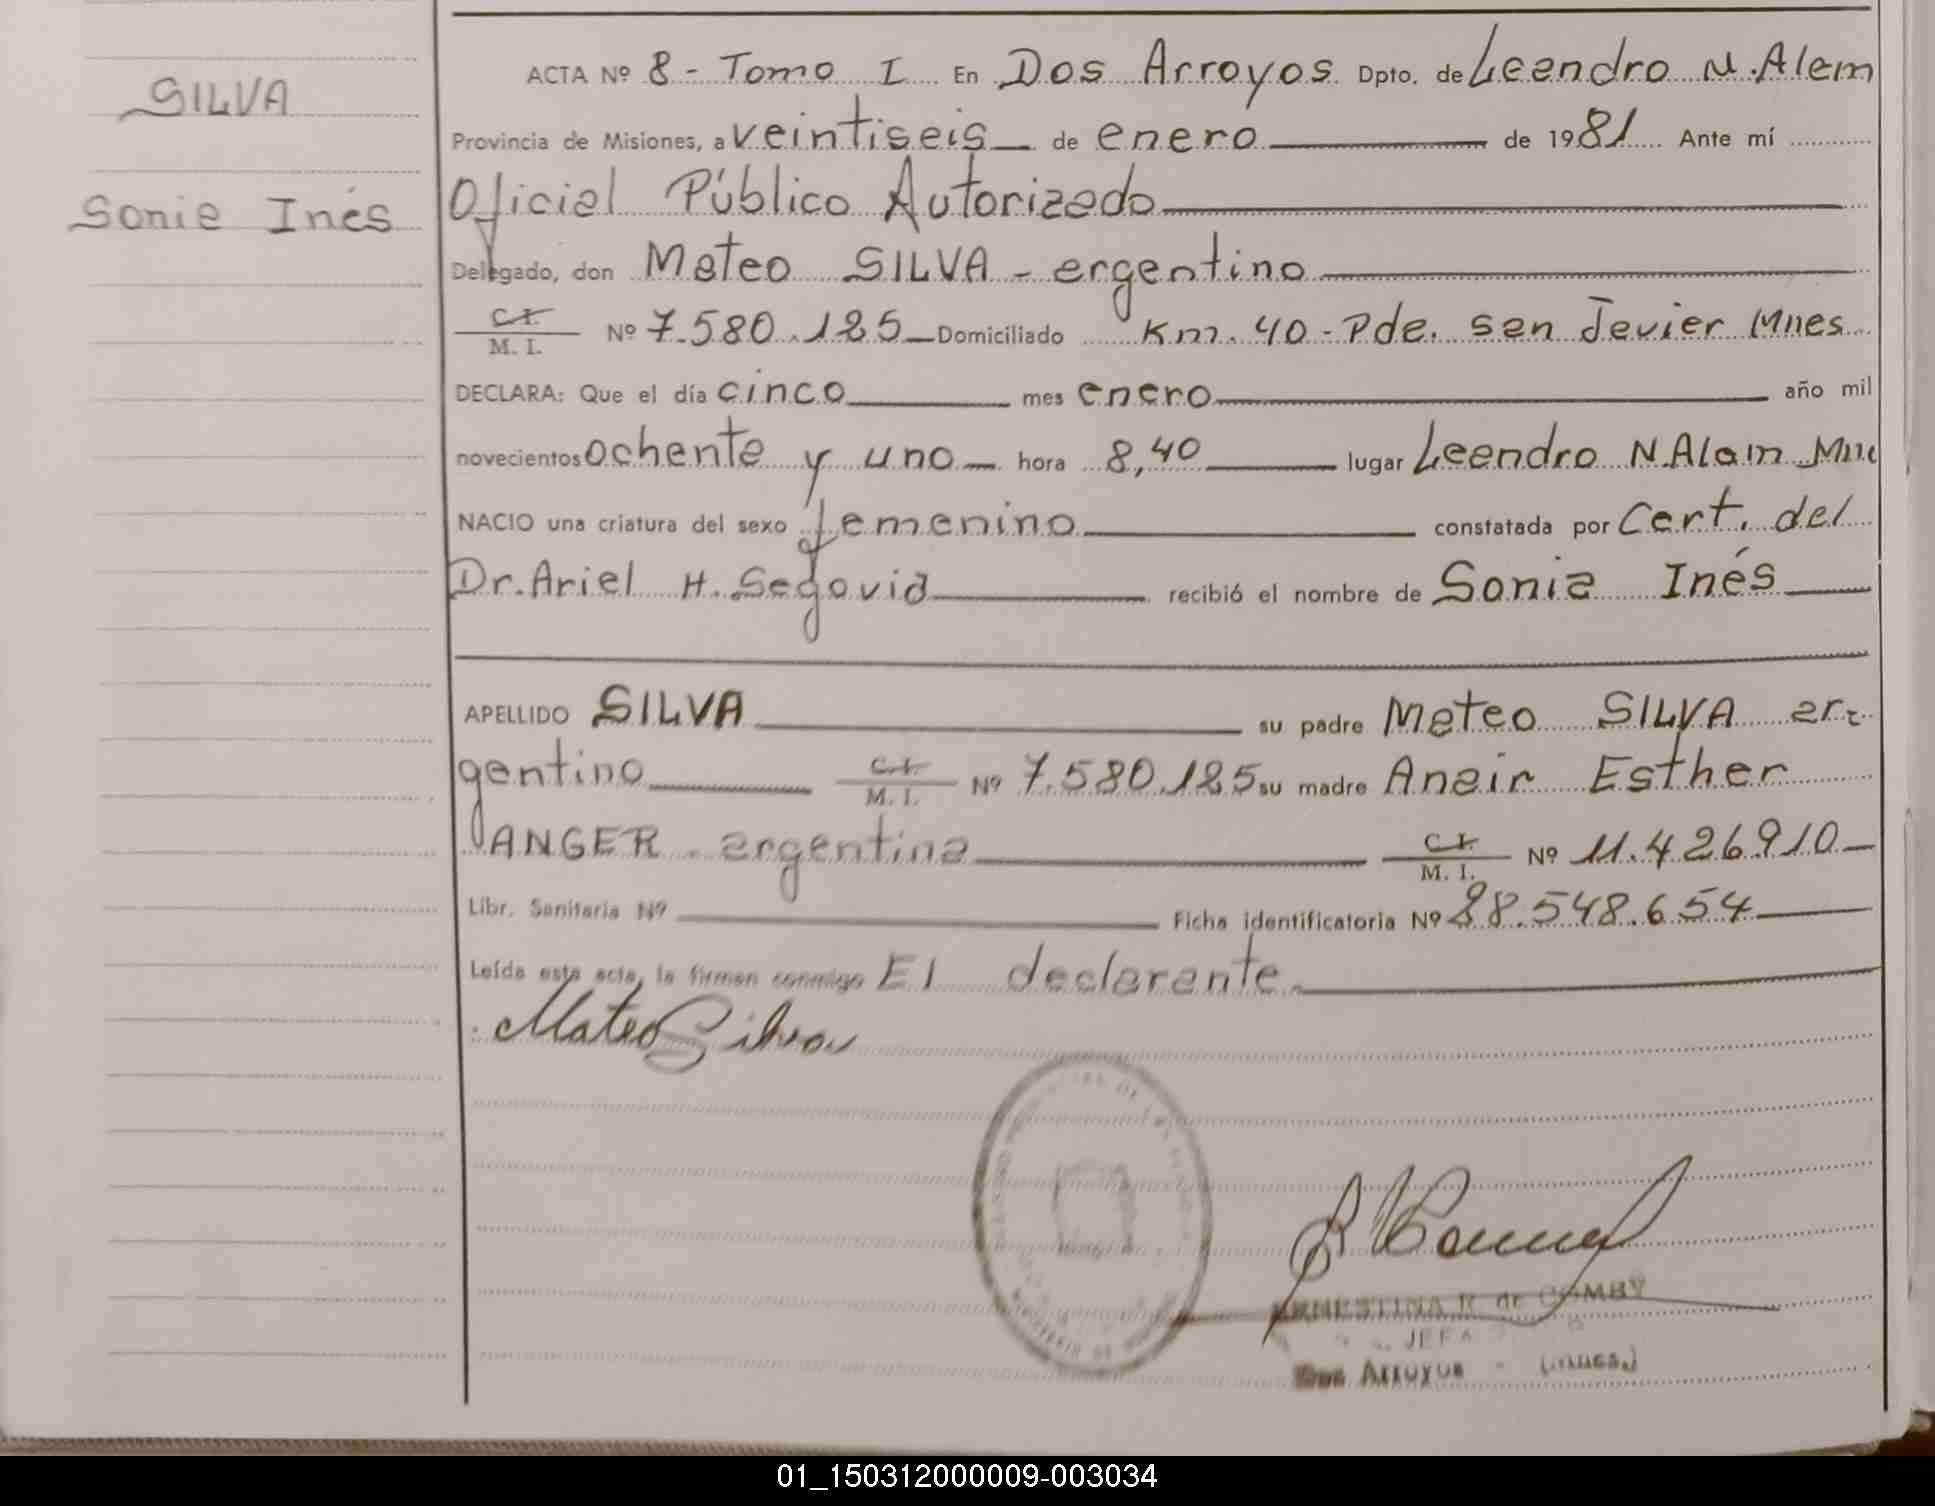 SILVA
Sonia Inés
ACTA Nº 8 - Tomo I En Dos Arroyos Dpto. de Leandro N. Alem
Provincia de Misiones, a veintiseis de enero de 1981 Ante mí
Oficial Público Autorizado
Delegado, don Mateo SILVA - argentino
C.I.
M. I. Nº 7.580.125 Domiciliado Km. 40 - Pde. san Javier Mnes
DECLARA: Que el día cinco mes enero año mil
novecientos ochenta y uno hora 8,40 lugar Leandro N Alem
NACIO una criatura del sexo femenino constatada por Cert. del
Dr. Ariel H. Segovia recibió el nombre de Sonia Inés
APELLIDO SILVA su padre Mateo SILVA ar-
gentino C.I.
M. I. Nº 7.580.125 su madre Anair Esther
ANGER - argentina C.I.
M. I. Nº 11.426.910
Libr. Sanitaria Nº Ficha identificatoria Nº 28.548.654
Leída esta acta, la firman conmigo El declarante.
Mateo Silva
ERNESTINA R. de COMBY
JEFA
Dos Arroyos - (Mnes.)
01_150312000009-003034